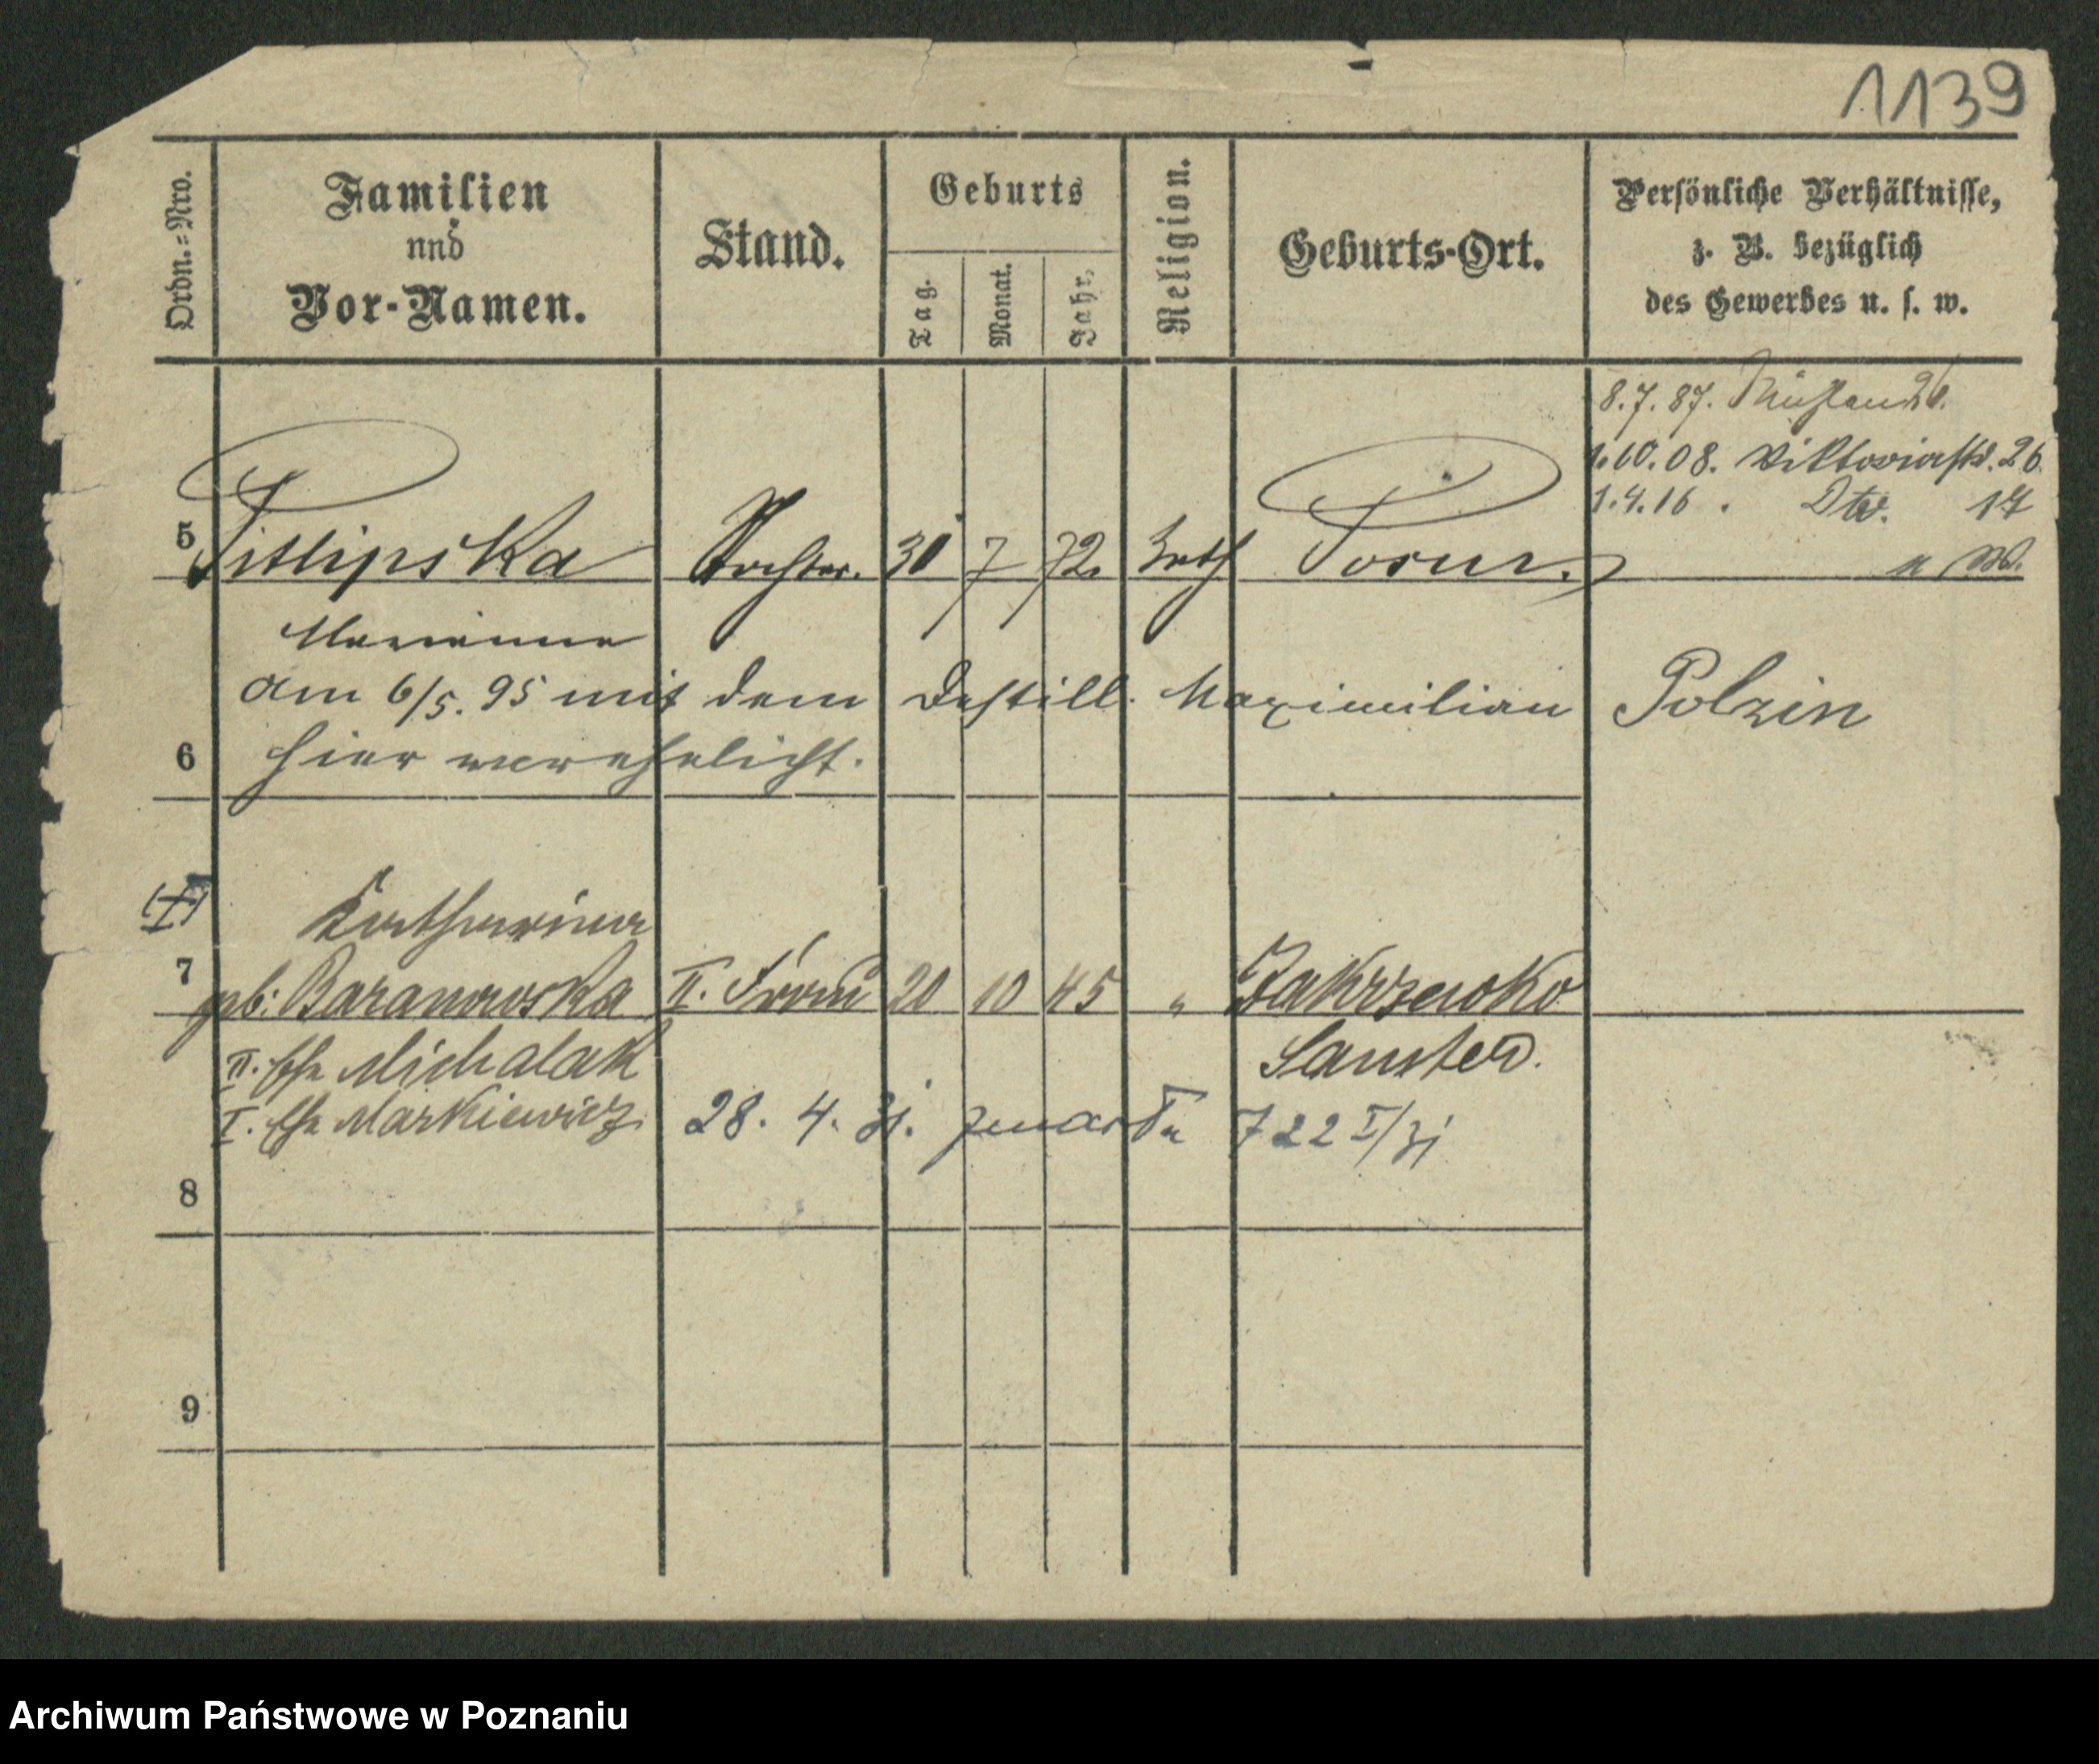 1139
Ordn.=Nro.
Familien
und
Vor-Namen.
Stand.
Geburts
Tag.
Monat.
Jahr.
Religion.
Geburts-Ort.
Persönliche Verhältnisse,
z. B. bezüglich
des Gewerbes u. s. w.
8.7.87.
1.10.08. Viktoriastr. 26
1.4.16. 17
5 Tochter. 30 7 72 kath Posen.
Marianna
am 6/5. 95 mit dem Destill. Maximilian Polzin
6 hier verehelicht.
Katharina
7 geb: Baranowska II. Frau 20 10 45 " Zakrzewko
II. Ehe Michalak Samter.
I. Ehe Markiewicz 28. 4. 31. zmarła 722 I/31
8
9
Archiwum Państwowe w Poznaniu